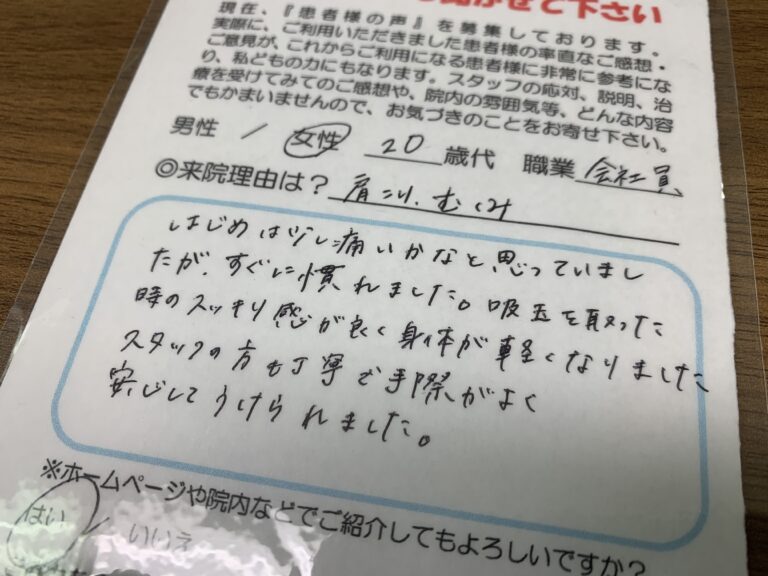 聞かせて下さい
現在、『患者様の声』を募集しております。
実際に、ご利用いただきました患者様の率直なご感想・
ご意見が、これからご利用になる患者様に非常に参考にな
り、私どもの力にもなります。スタッフの応対、説明、治
療を受けてみてのご感想や、院内の雰囲気等、どんな内容
でもかまいませんので、お気づきのことをお寄せ下さい。
男性 / 女性 20 歳代 職業 会社員
◎来院理由は? 肩こり、むくみ
はじめは少し痛いかなと思っていまし
たが、すぐに慣れました。吸玉を取った
時のスッキリ感が良く身体が軽くなりました
スタッフの方も丁寧で手際がよく
安心してうけられました。
※ホームページや院内などでご紹介してもよろしいですか?
はい / いいえ